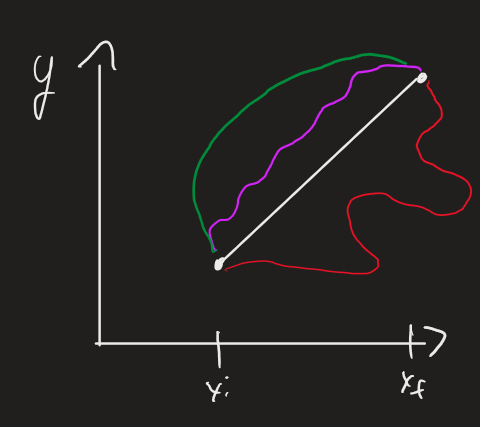 y
xi
xf